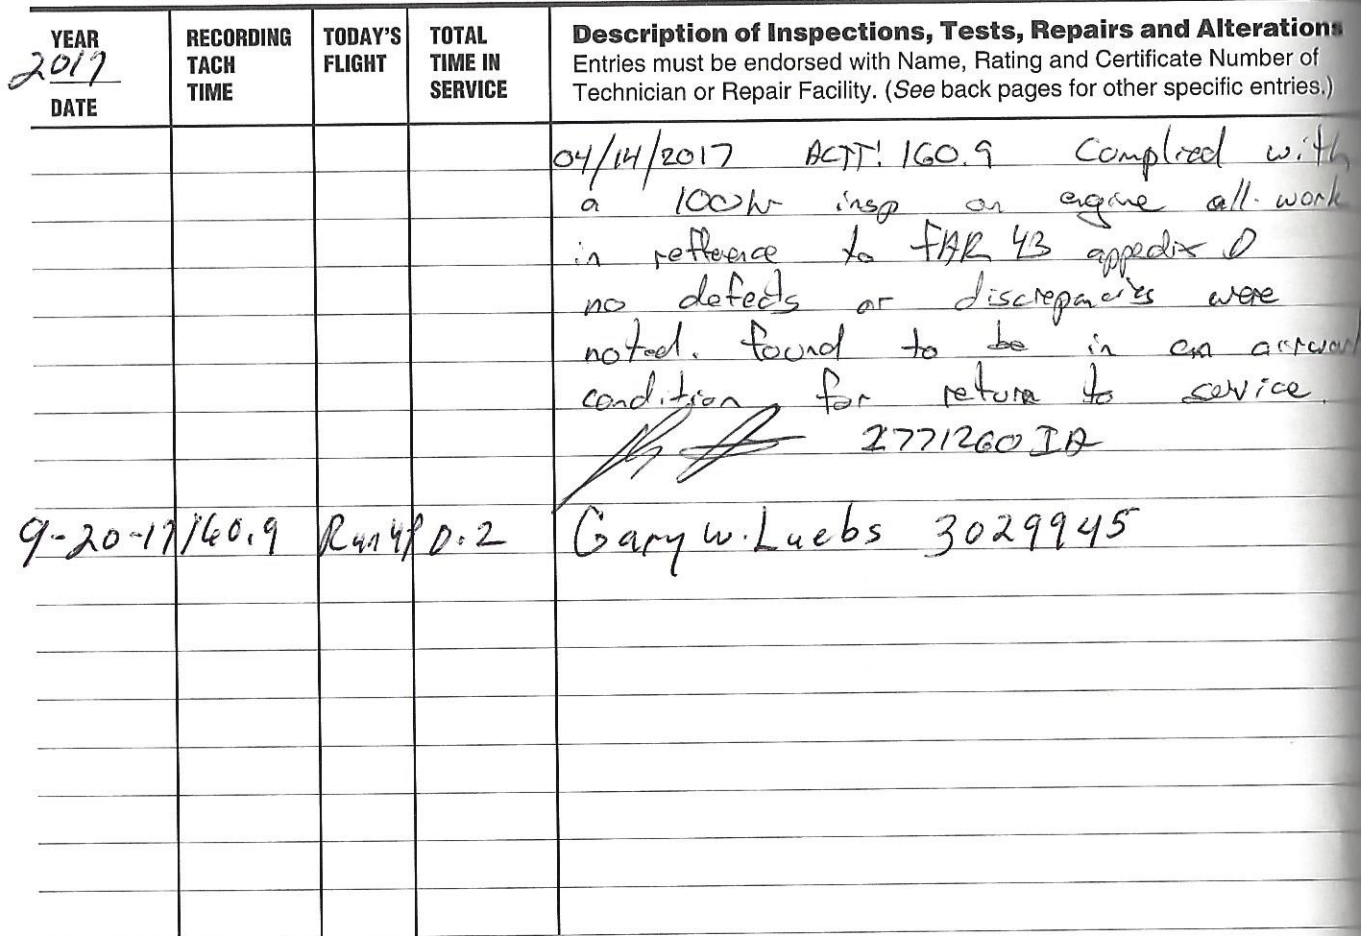 YEAR
2017
DATE
RECORDING
TACH
TIME
TODAY'S
FLIGHT
TOTAL
TIME IN
SERVICE
Description of Inspections, Tests, Repairs and Alterations
Entries must be endorsed with Name, Rating and Certificate Number of
Technician or Repair Facility. (See back pages for other specific entries.)
04/14/2017 ACTT: 160.9 Complied with
a 100hr insp on engine all work
in reffernce to FAR 43 appedix D
no defects or discrepancies were
noted. found to be in an
condition for return to service.
2771260 IA
9-20-17 160.9 Run up 0.2 Gary W. Luebs 3029945